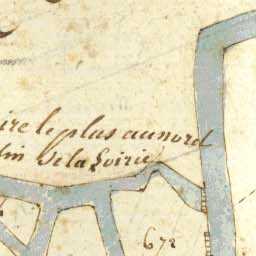 ire le plus au nord
din de la Loirie
672